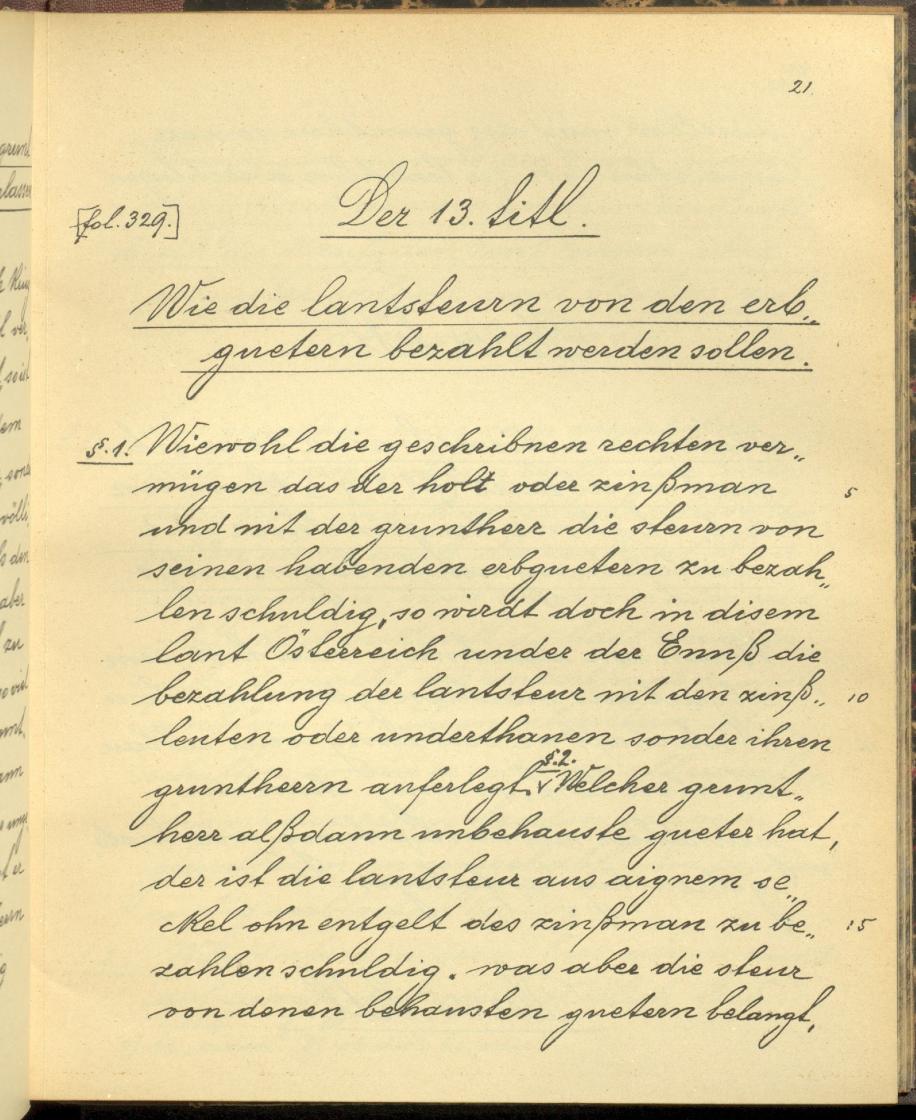 21
[fol. 329.] Der 13. titl.
Wie die lantsteurn von den erb„
guetern bezahlt werden sollen.
§.1. Wiewohl die geschribnen rechten ver„
mügen das der holt oder zinßman 5
und nit der gruntherr die steurn von
seinen habenden erbguetern zu bezah„
len schuldig, so wirdt doch in disem
lant Österreich under der Ennß die
bezahlung der lantsteur nit den zinß„ 10
leuten oder underthanen sonder ihren
gruntherrn auferlegt. §.2. Welcher grunt„
herr alßdann unbehauste gueter hat,
der ist die lantsteur aus aignem se„
ckel ohn entgelt des zinßman zu be„ 15
zahlen schuldig. was aber die steur
von denen behausten guetern belangt,